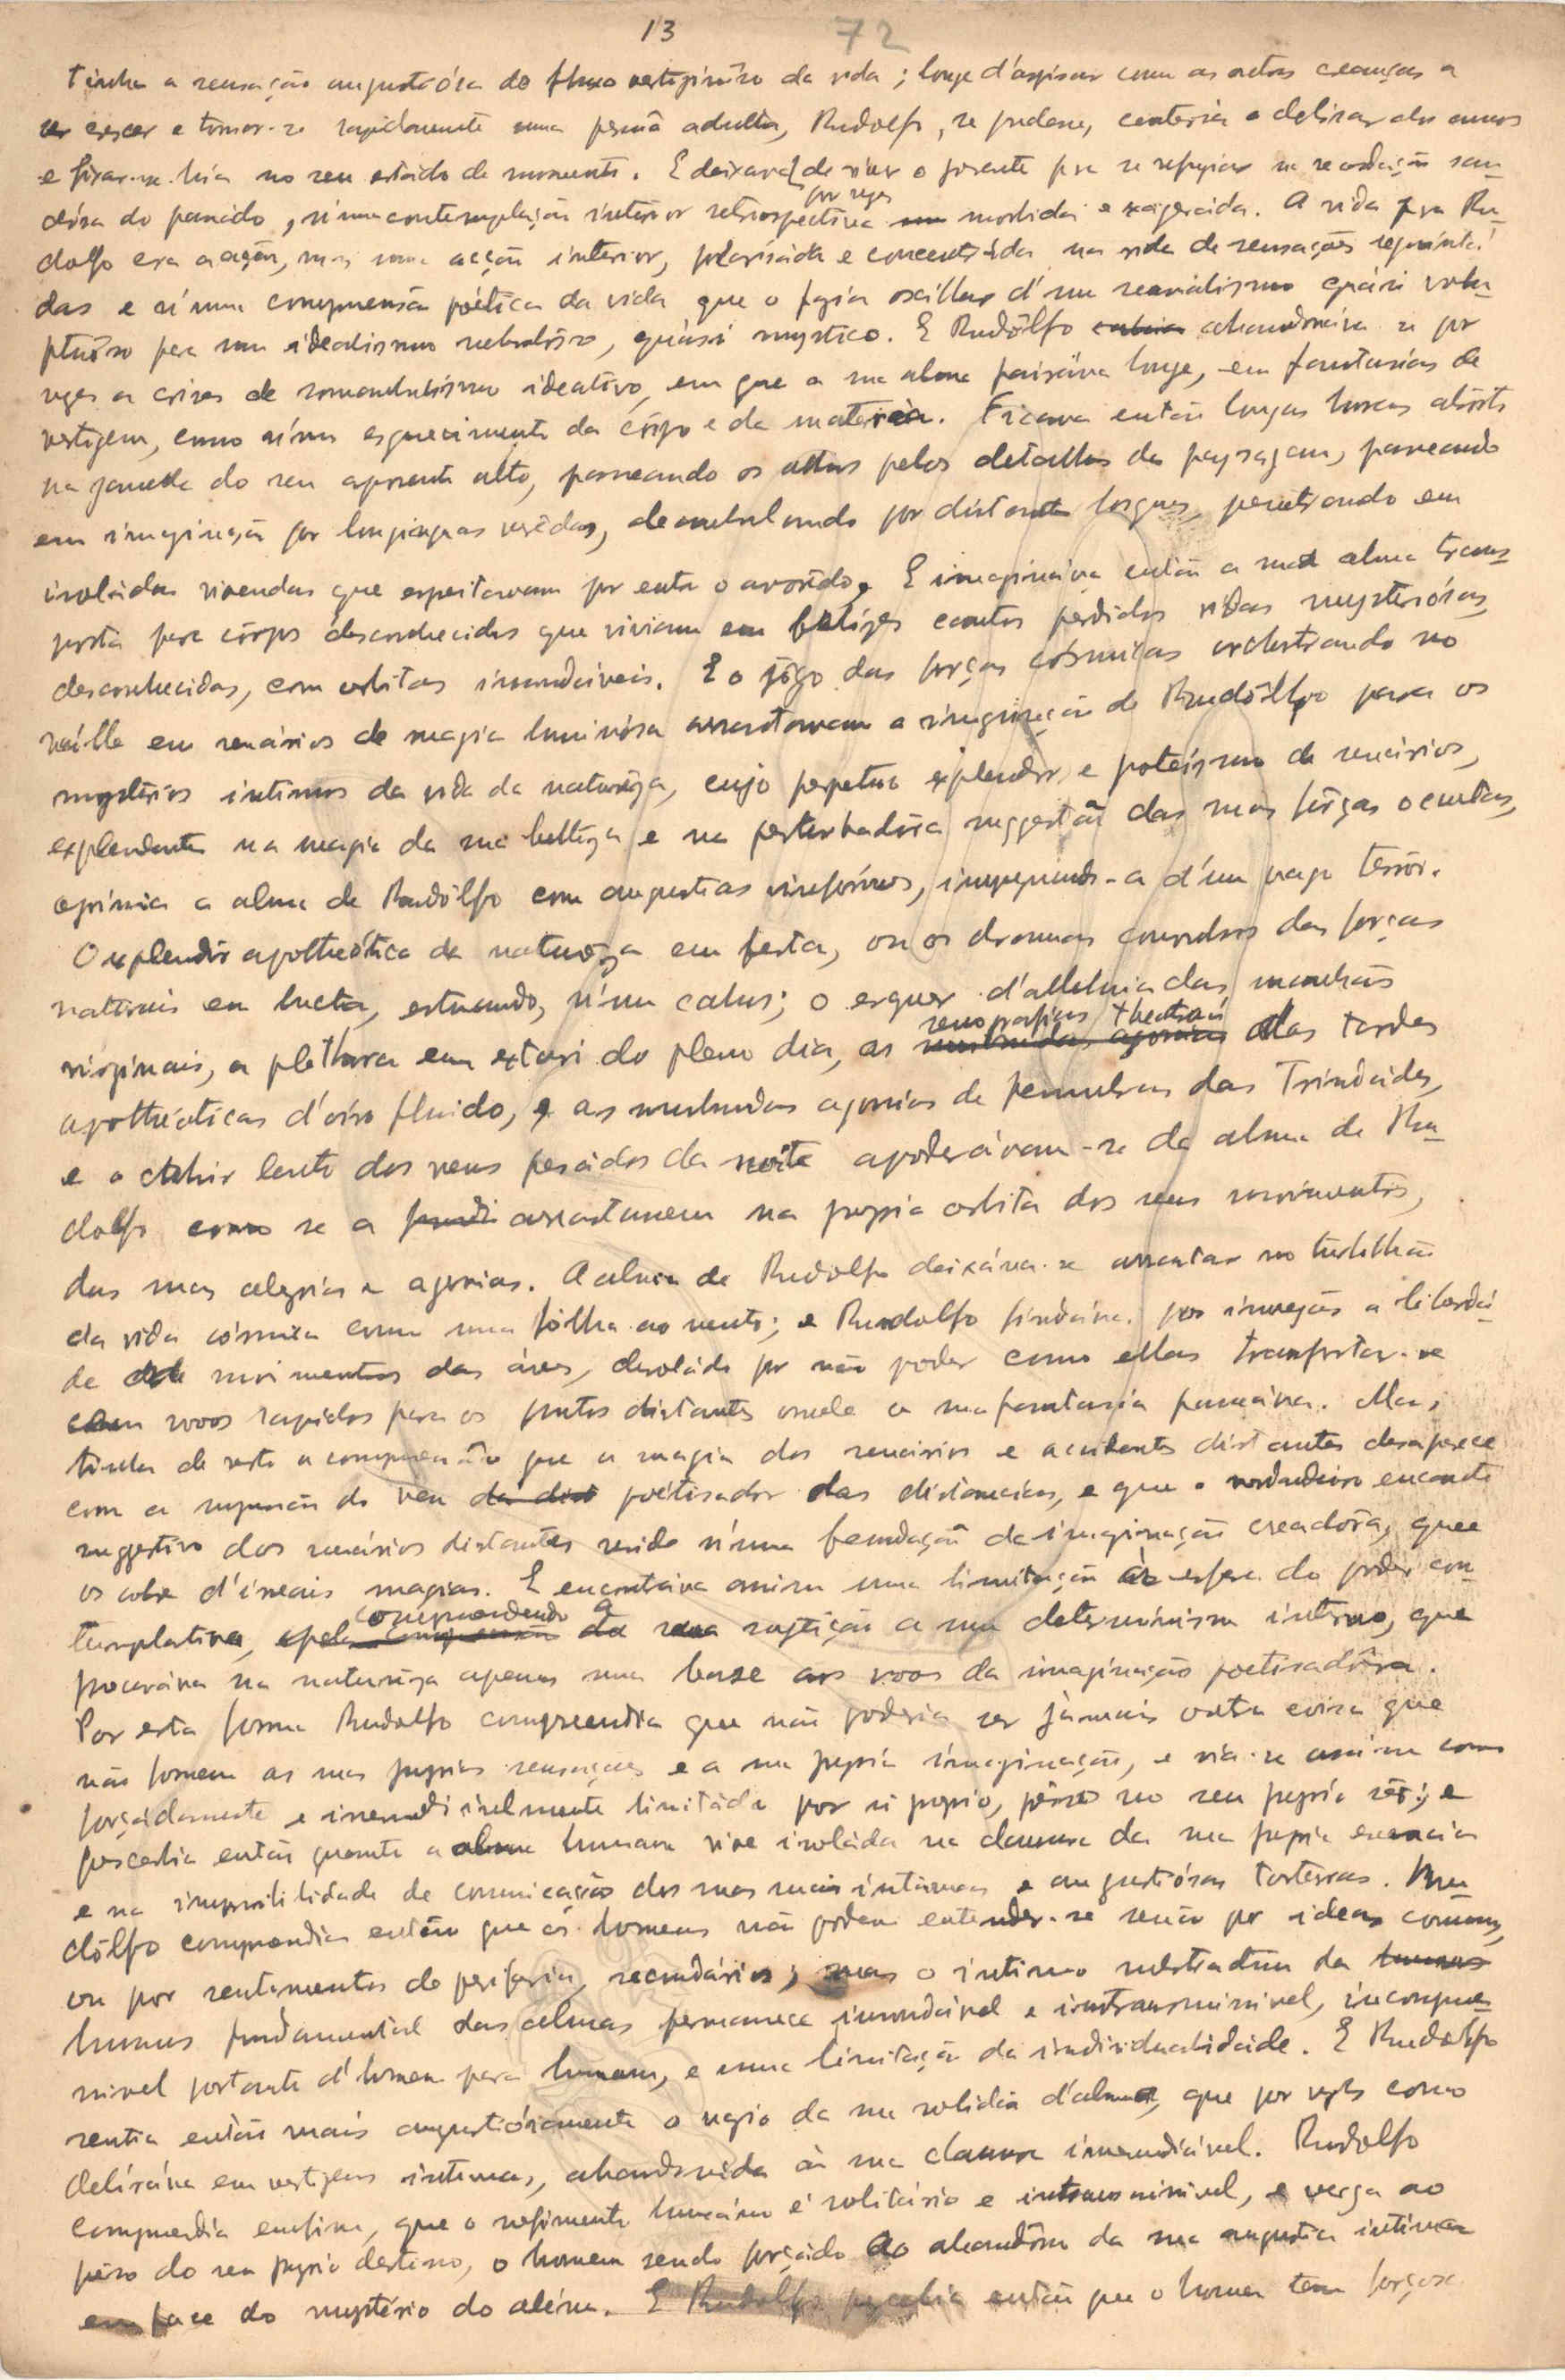 13 72
Tinha a sensação angustiósa do fluxo vertiginôso da vida; longe d'aspirar como as outras creanças a
crescer e tornar-se rapidamente uma pessoa adulta, Rudolfo, se pudesse, conteria o deslisar dos annos
e fixar-se-hia no seu estado de momento. E deixava de viver o presente para se refugiar na recordação sau-
dósa do passado, n'uma contemplação interior retrospectiva por vezes morbida e exagerada. A vida para Ru-
dolfo era a acção, mas uma acção interior, polarisada e concentrada na vida de sensações requinta-
das e n'uma comprensão poética da vida que o fazia oscillar d'um sensualismo quási volu-
ptuôso para um idealismo nebulôso, quási mystico. E Rudólfo abandonáva-se por
vezes a crises de somnambulismo ideativo, em que a sua alma pairáva longe, em fantasias de
vertigem, como n'um esquecimento do côrpo e da materia. Ficava então longas horas absorto
na janella do seu aposento alto, passeando os olhos pelos detalhes da paysagem, passeando
em imaginação por longinquas verêdas, deambulando por distantes bosques, penetrando em
isoladas vivendas que espreitavam por entre o arvorêdo. E imagináva então a sua alma trans-
posta para côrpos desconhecidos que viviam em felizes cantos perdidos vidas mysteriósas,
desconhecidas, com orbitas insondáveis. E o jôgo das forças cósmicas orchestrando no
valle em scenários de magia luminósa arrastavam a imaginação de Rudólfo para os
mystérios intimos da vida da naturêza, cujo perpetuo explendor e poteísmo de scenários,
explendente na magia da sua bellêza e na perturbadôra suggestão das suas fôrças ocultas,
oprimia a alma de Rudólfo com angustias, impregnando-a d'um vago terrôr.
O explendôr apotheótico da naturêza em festa, ou os dramas convulsos das forças
naturais em lucta, estuando, n'um cahos; o erguer d'alleluia das manhãs
virginais, a plethora em extasi do pleno dia, as scenografias theatrais das tardes
apotheóticas d'oiro fluido, e as moribundas agonias de penumbras das Trindades,
e o cahir lento dos veus pesados da noite apoderávam-se da alma de Ru-
dolfo como se a arrastassem na propria orbita dos seus movimentos,
das suas alegrias e agonias. A alma de Rudolfo deixáva-se arrastar no turbilhão
da vida cósmica como uma fôlha ao vento; e Rudolfo por invejar a liberda-
de de movimentos das áves, desolado por não poder como ellas transportar-se
em voos rapidos para os pontos distantes onde a sua fantasia passeáva. Mas,
tinha de resto a comprensão que a magia dos scenários e accidentes distantes desaparece
com a supressão do veu poétisador das distancias, e que o verdadeiro encanto
suggestivo dos scenários distantes reside n'uma fecundação da imaginação creadôra, que
os cobre d'irreais magias. E encontráva assim uma limitação á esfera do poder con-
templativo, comprendendo a sua sujeição a um determinismo interno, que
procuráva na naturêza apenas uma base aos voos da imaginação poetisadôra.
Por esta forma Rudolfo comprendia que não poderia ser jámais outra coisa que
não fossem as suas proprias sensações e a sua propria imaginação, e via-se assim como
forçádamente e irremediávelmente limitádo por si proprio, prêso no seu proprio sêr; e
percebia então quanto a alma humana vive isoláda na clausura da sua propria essencia
e na impossibilidade de comunicação das suas mais intimas e angustiósas torturas. Ru-
dólfo comprendia então que os homens não podem entender-se senão por ideas comuns,
ou por sentimentos de periferia, secundários; mas o intimo substractum do
humus fundamental das almas permanece insondável e intransmissivel, incompre-
nsivel portanto d'homem para homem, e uma limitação da individualidade. E Rudolfo
sentia então mais angustiósamente o vazio da sua solidão d'alma, que por vezes como
deliráva em vertigens intimas, abandonáda á sua clausura irremediável. Rudolfo
comprendia emfim, que o sofrimento humáno é solitário e intransmissivel, e verga ao
pêso do seu proprio destino, o homem sendo forçádo ao abandôno da sua angustia intima
em face do mystério do além. E Rudolfo percebia então que o homem tem forças